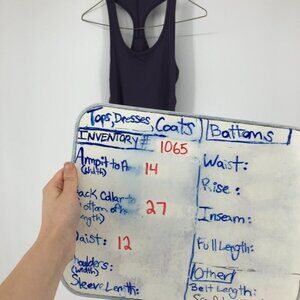 Tops, Dresses, Coats
INVENTORY # 1065
Armpit to A
(width) 14
Back Collar to
Bottom of h
Length) 27
Waist: 12
Shoulders:
(width)
Sleeve Length:
Bottoms
Waist:
Rise:
Inseam:
Full Length:
Other
Belt Length: